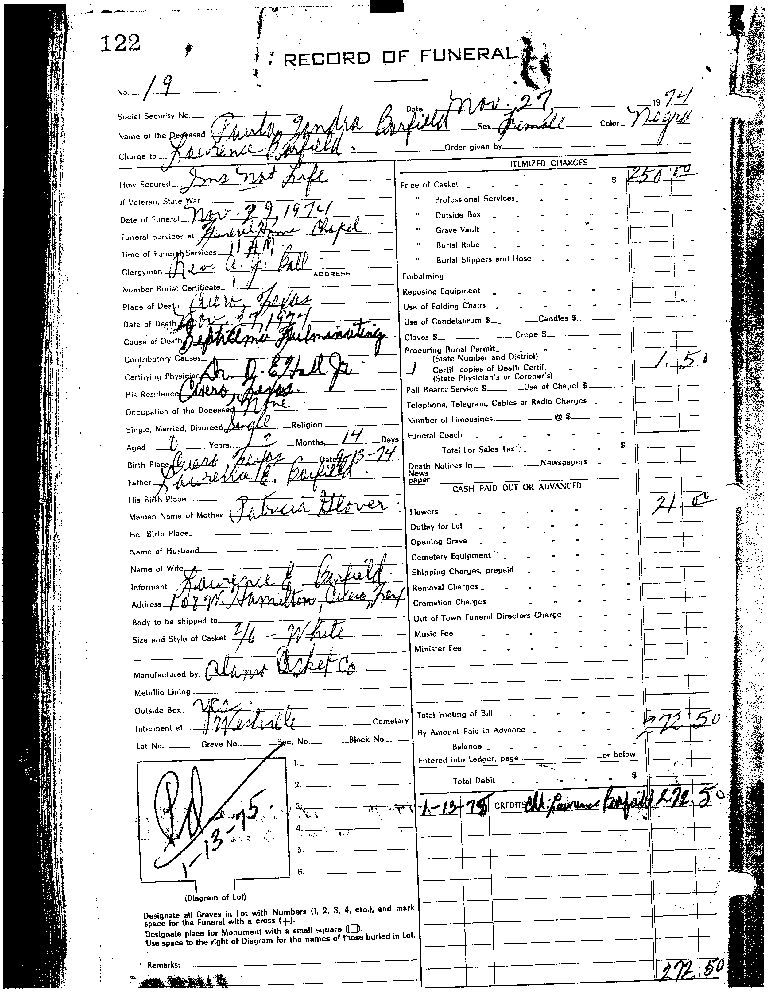 122
RECORD OF FUNERAL
No. 19
Social Security No. Date Nov. 27, 1974
Name of the Deceased Sandra Barfield Sex Female Color Negro
Charge to Lawrence Barfield. Order given by
How Secured Ins not Life
If Veteran, State War
Date of Funeral Nov 29, 1974
Funeral Services at Funeral Home Chapel
Time of Funeral Services 11 A.M.
Clergyman Rev. Ball ADDRESS
Number Burial Certificate
Place of Death Cuero, Texas
Date of Death Nov. 27, 1974
Cause of Death Fulminating
Contributory Causes
Certifying Physician Dr. D. E. Hall Jr
His Residence Cuero, Texas.
Occupation of the Deceased None
Single, Married, Divorced Single Religion
Aged 0 Years 2 Months 14 Days
Birth Place Texas Date 9-13-74
Father Lawrence E. Barfield
His Birth Place
Maiden Name of Mother Patricia Glover
Her Birth Place
Name of Husband
Name of Wife
Informant Lawrence E Barfield
Address W. Hamilton, Cuero, Tex
Body to be shipped to
Size and Style of Casket 2/6 - White
Manufactured by Alamo Casket Co
Metallic Lining
Outside Box yes
Interment at Westville Cemetery
Lot No. Grave No. Sec. No. Block No.
1.
2.
3.
4.
5.
6.
Pd
1-13-75
(Diagram of Lot)
Designate all Graves in Lot with Numbers (1, 2, 3, 4, etc.), and mark
space for the Funeral with a cross (+).
Designate place for Monument with a small square (□).
Use space to the right of Diagram for the names of those buried in Lot.
Remarks:
ITEMIZED CHARGES
Price of Casket $ 250.00
" Professional Services
" Outside Box
" Grave Vault
" Burial Robe
" Burial Slippers and Hose
Embalming
Reposing Equipment
Use of Folding Chairs
Use of Candelabrum $ Candles $
Gloves $ Crepe $
Procuring Burial Permit
(State Number and District)
1 Certif. copies of Death Certif. 1.50
(State Physician's or Coroner's)
Pall Bearer Service $ Use of Chapel $
Telephone, Telegram, Cables or Radio Charges
Number of Limousines @ $
Funeral Coach
Total for Sales Tax $
Death Notices in Newspapers
News
paper
CASH PAID OUT OR ADVANCED
Flowers 21.00
Outlay for Lot
Opening Grave
Cemetery Equipment
Shipping Charges, prepaid
Removal Charges
Cremation Charges
Out of Town Funeral Directors Charge
Music Fee
Minister Fee
Total Footing of Bill 272.50
By Amount Paid in Advance
Balance
Entered into Ledger, page or below
Total Debit $
1-13-75 CREDITS Lawrence Barfield 272.50
272.50